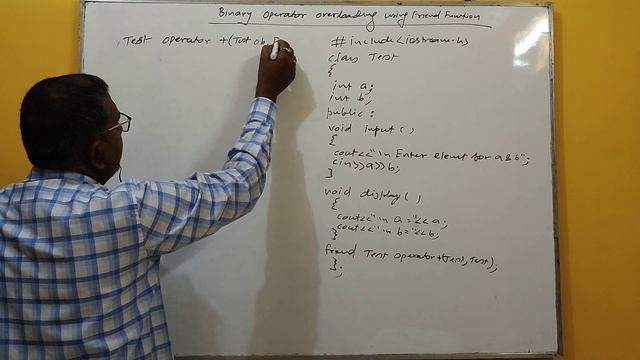 Binary Operator overloading using Friend Function
Test operator +(Test ob,
#include<iostream.h>
class Test
{
int a;
int b;
public:
void input()
{
cout<<"\n Enter elemt for a & b";
cin>>a>>b;
}
void display()
{
cout<<"\n a ="<<a;
cout<<"\n b ="<<b;
}
friend Test operator+(Test,Test);
};